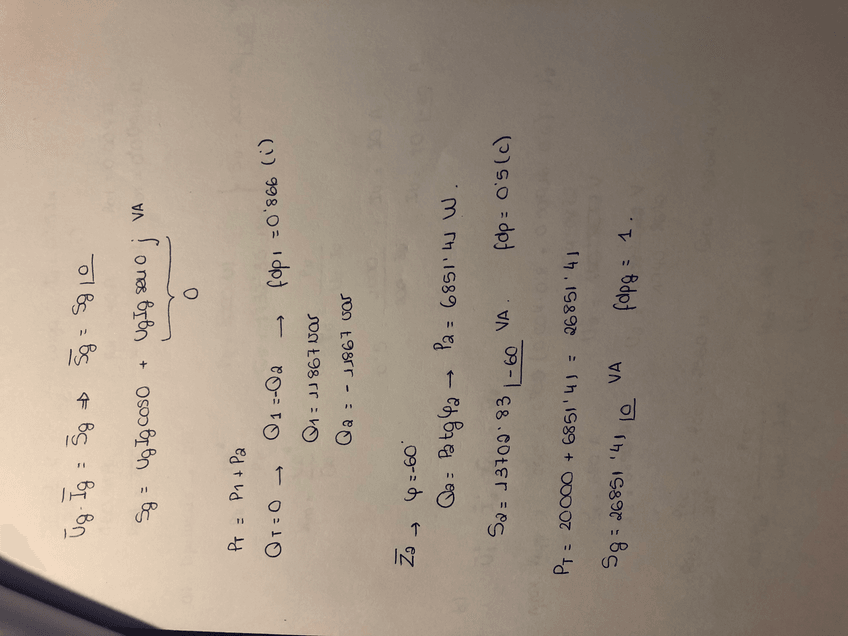 Ūg · Īg = S̄g ⇒ S̄g = Sg |0
Sg = UgIg cos0 + UgIg sen0 j VA
0
PT = P1 + P2
QT = 0 → Q1 = -Q2 → fdp1 = 0'866 (i)
Q1 = 11867 var
Q2 = - 11867 var
Z̄2 → φ = -60°
Q2 = P2 tg φ2 → P2 = 6851'41 W.
S2 = 13702'83 |-60 VA. fdp = 0'5 (c)
PT = 20000 + 6851'41 = 26851'41
Sg = 26851'41 |0 VA fdpg = 1.